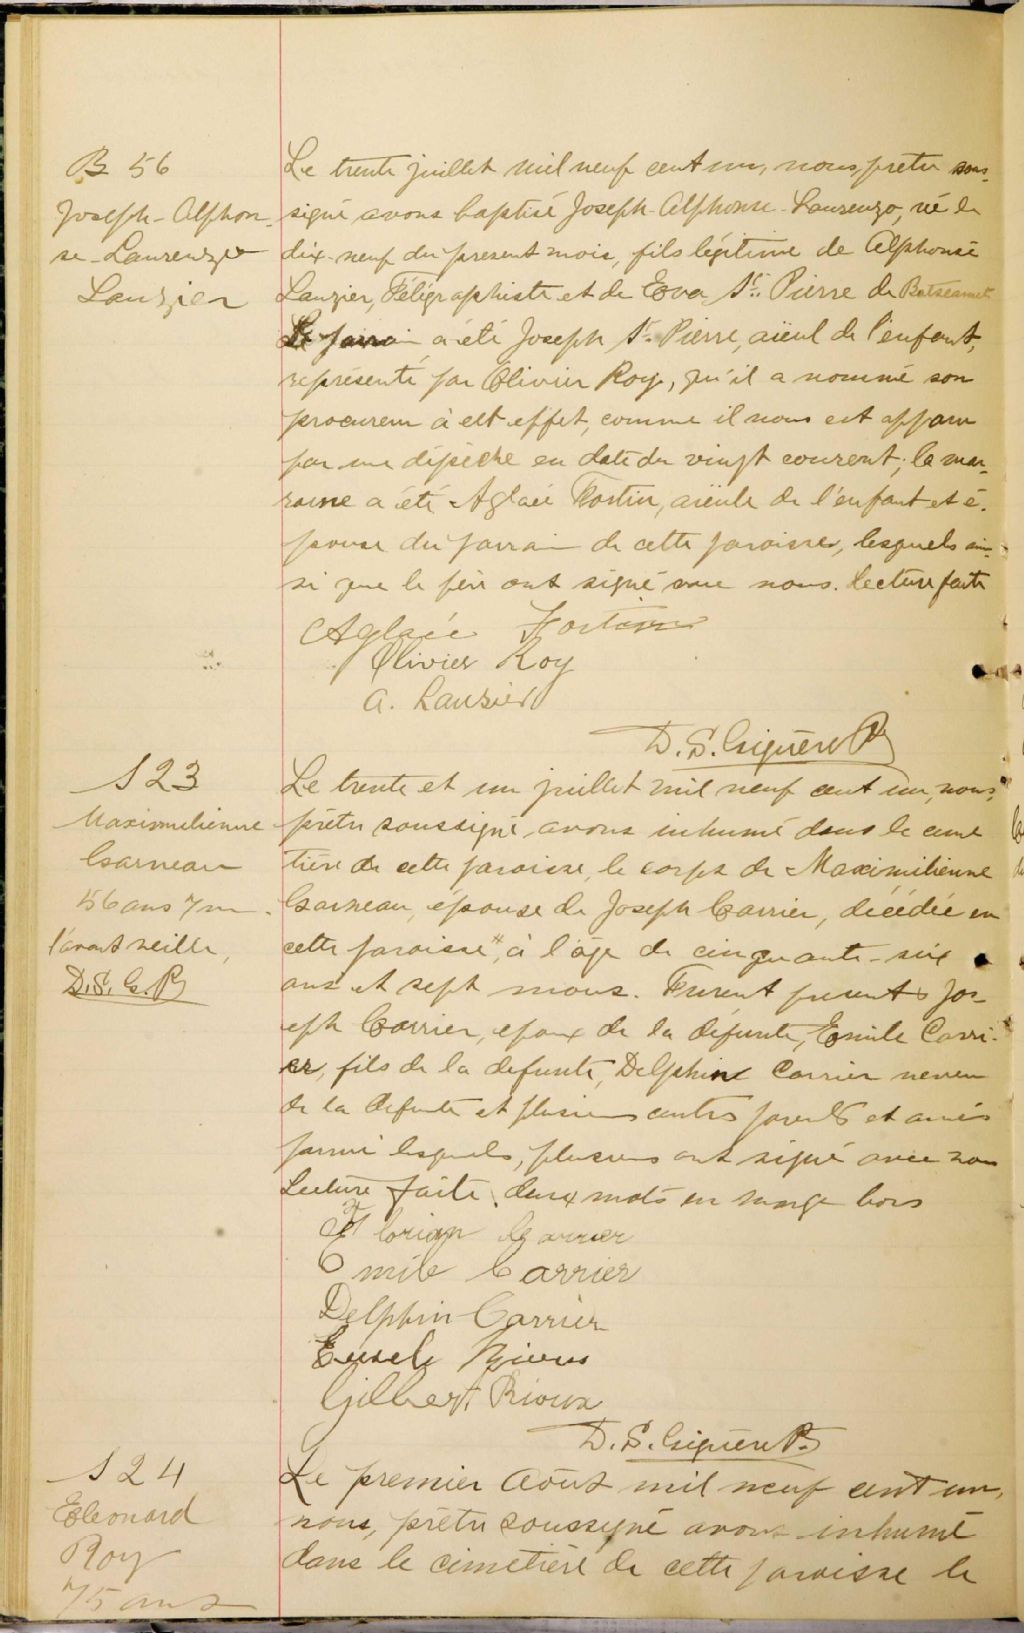 B 56
Joseph-Alphon-
se-Laurenzo
Lauzier
Le trente juillet mil neuf cent un, nous, prêtre sous-
signé avons baptisé Joseph-Alphonse-Laurenzo, né le
dix-neuf du present mois, fils légitime de Alphonse
Lauzier, Télégraphiste et de Eva St. Pierre de Betseamit
Le parrain a été Joseph St. Pierre, aïeul de l'enfant,
représenté par Olivier Roy, qu'il a nommé son
procureur à cet effet, comme il nous est apparu
par une dépêche en date du vingt courant; la mar-
raine a été Aglaée Fortin, aïeule de l'enfant et é-
pouse du parrain de cette paroisse, lesquels ain-
si que le père ont signé avec nous. Lecture faite
Aglaée Fortin
Olivier Roy
A. Lauzier
D. S. Giguère Ptr
S 23
Maximilienne
Garneau
56 ans 7 m.
l'avant veille,
D. S. G. P
Le trente et un juillet mil neuf cent un, nous,
prêtre soussigné, avons inhumé dans le cime
tière de cette paroisse, le corps de Maximilienne
Garneau, épouse de Joseph Carrier, décédée en
cette paroisse #, à l'âge de cinquante-six
ans et sept mois. Furent presents Jos-
eph Carrier, epoux de la défunte, Emile Carri-
er, fils de la defunte, Delphine Carrier neveu
de la defunte et plusieurs autres parents et amis
parmi lesquels, plusieurs ont signé avec nous
Lecture faite. deux mots en marge bons
Florian Carrier
Emile Carrier
Delphin Carrier
Gilbert Rioux
D. S. Giguère P.
S 24
Eleonard
Roy
75 ans
Le premier Août mil neuf cent un,
nous, prêtre soussigné avons inhumé
dans le cimetière de cette paroisse le